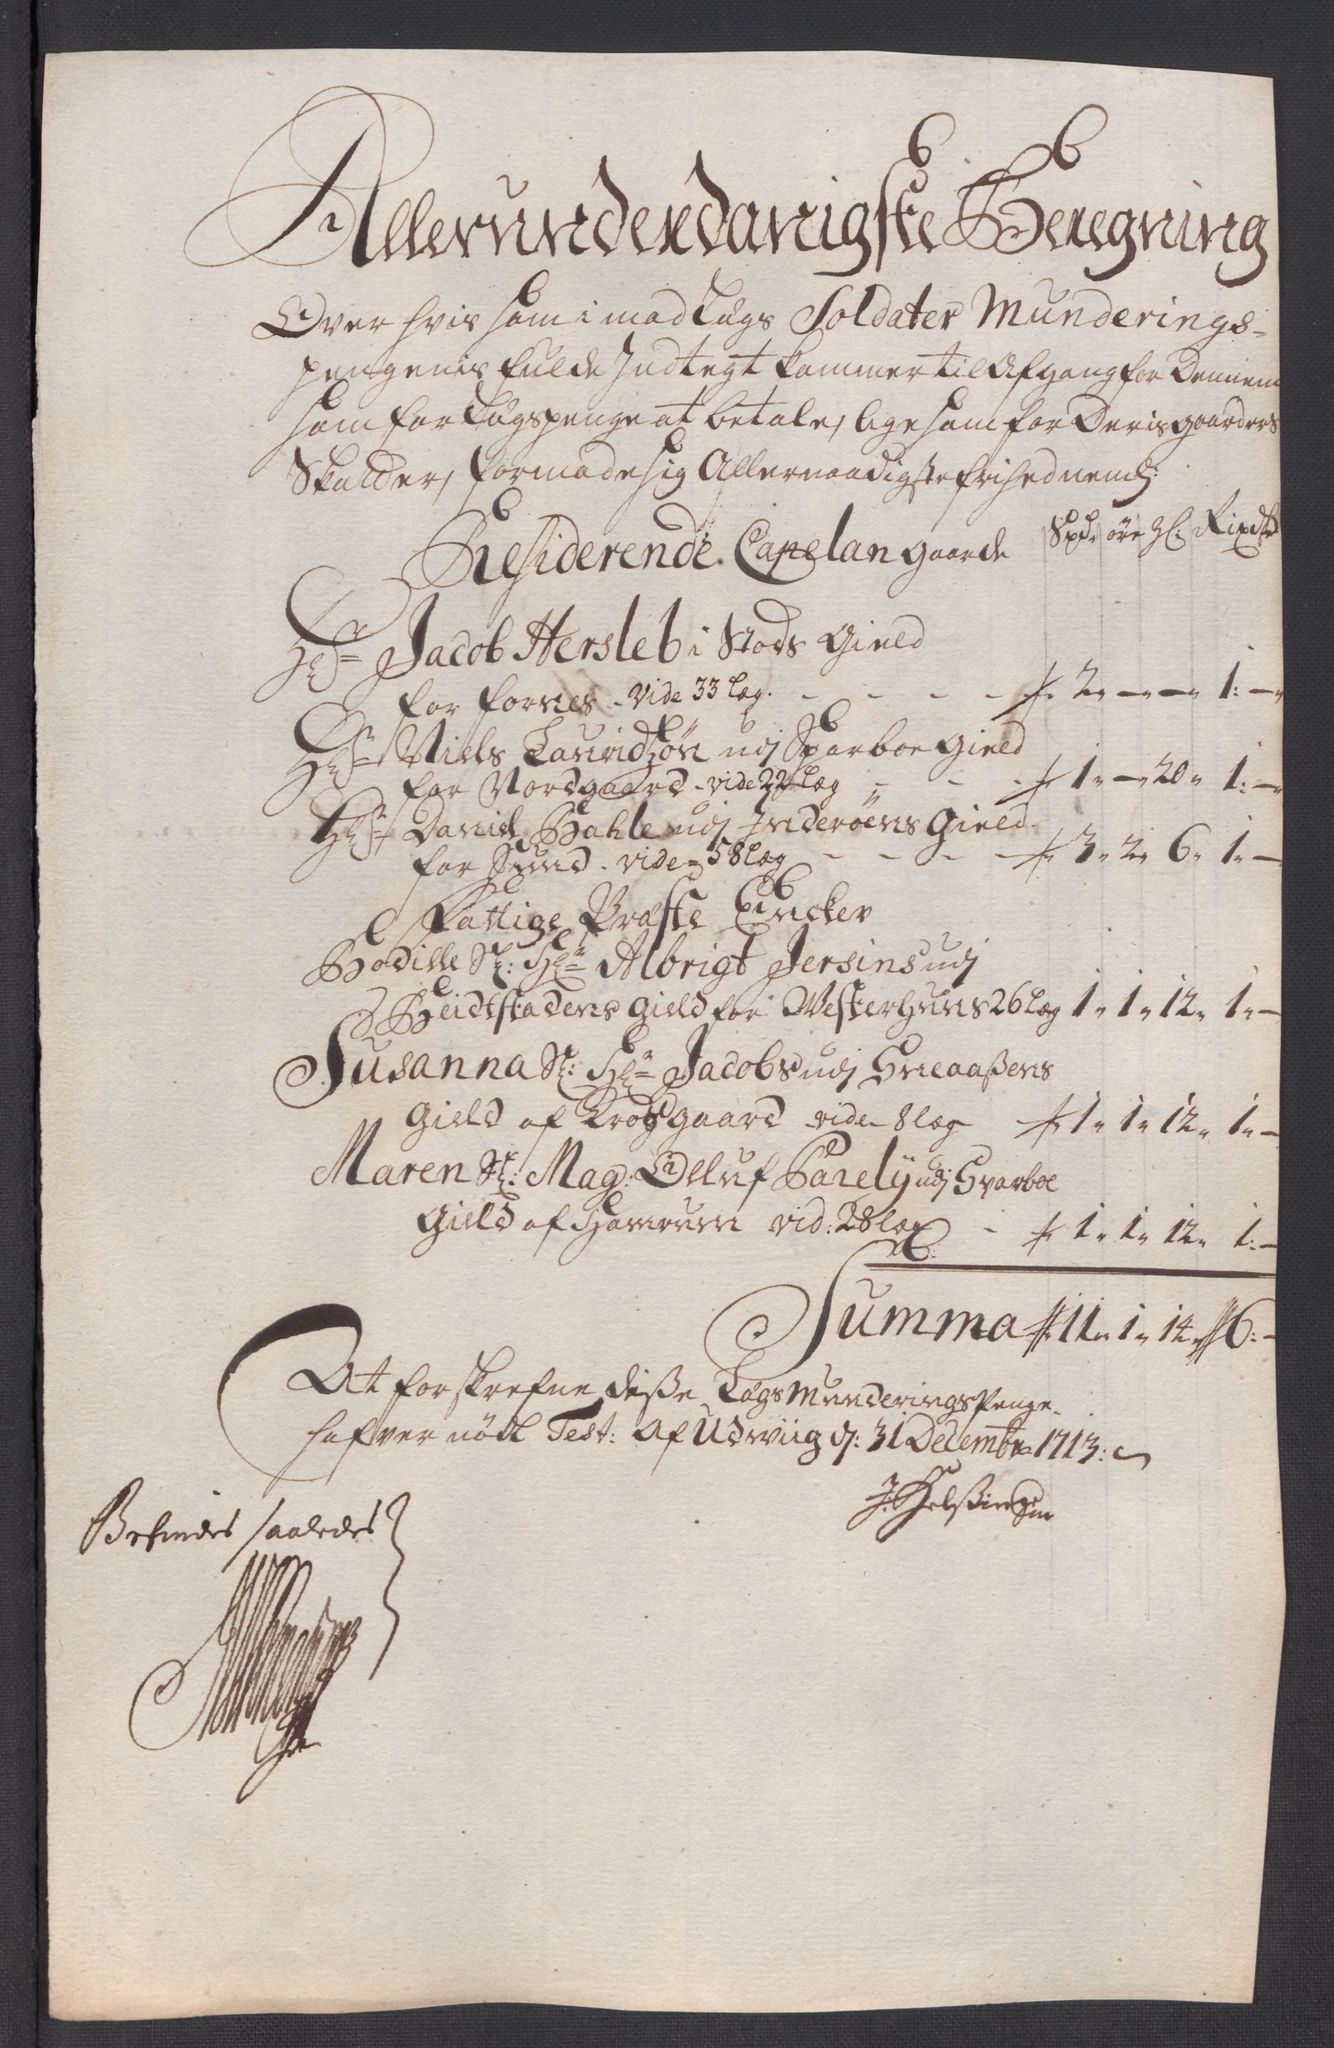 Allerunderdanigste Beregning
Over hvis som i mod Lægs Soldater Munderings-
pengenis fulde Indtegt kommer til Afgang for Dennem
som for Lægspenge at betale, lige som for Deris gaarders
Skatter, formode sig Allernaadigste frihed neml:
Residerende Capelan gaarde Spd: öre ℔: Rixdlr
Hr: Jacob Hersleb i Stods Gield
for Fornes - vide 33 læg. - - - - 2" — — 1: —
Hr: Niels Lauridtzön udj Sparboe Gield
for Nordgaard - vide 22 læg - - - 1" — 20" 1: —
Hr: Daniel udj Inderöens Gield
for Sund - vide 58 læg - - - - 3" 2" 6" 1" —
Fattige Præste Encker
Bodille Sl: Hr: Albrigt Jersins udj
Beidtstadens gield for Westerhuus 26 læg 1" 1" 12" 1" —
Susanna Sl: Hr: Jacobs udj Snaaßens
Gield af Krogsgaard vide 8 læg 1" 1" 12" 1" —
Maren Sl: Mag: Olluf udj Sparboe
Gield af Hamrum vid: 28 læg - 1" 1" 12" 1: —
Summa 11" 1" 14" 6: —
At forskrefne diße Lægs Munderings Penge
hafver nödt Test: Af Udwiig d: 31 Decembr 1713:
Befindes saaledes